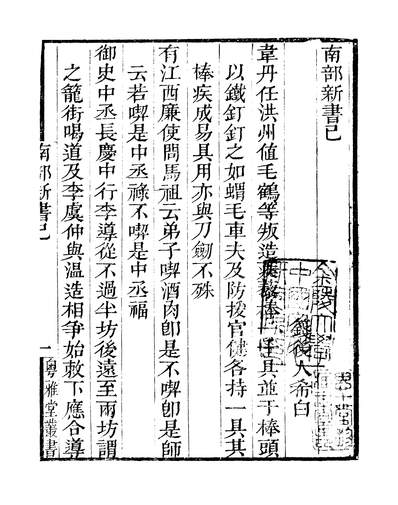 南部新書己
籛後人希白
韋丹任洪州值毛鶴等叛造蒺藜棒一千具並于棒頭
以鐵釘釘之如蝟毛車夫及防援官健各持一具其
棒疾成易具用亦與刀劒不殊
有江西廉使問馬祖云弟子喫酒肉卽是不喫卽是師
云若喫是中丞祿不喫是中丞福
御史中丞長慶中行李導從不過半坊後遠至兩坊謂
之籠街喝道及李虞仲與溫造相爭始敕下應合導
南部新書己
一
粤雅堂叢書